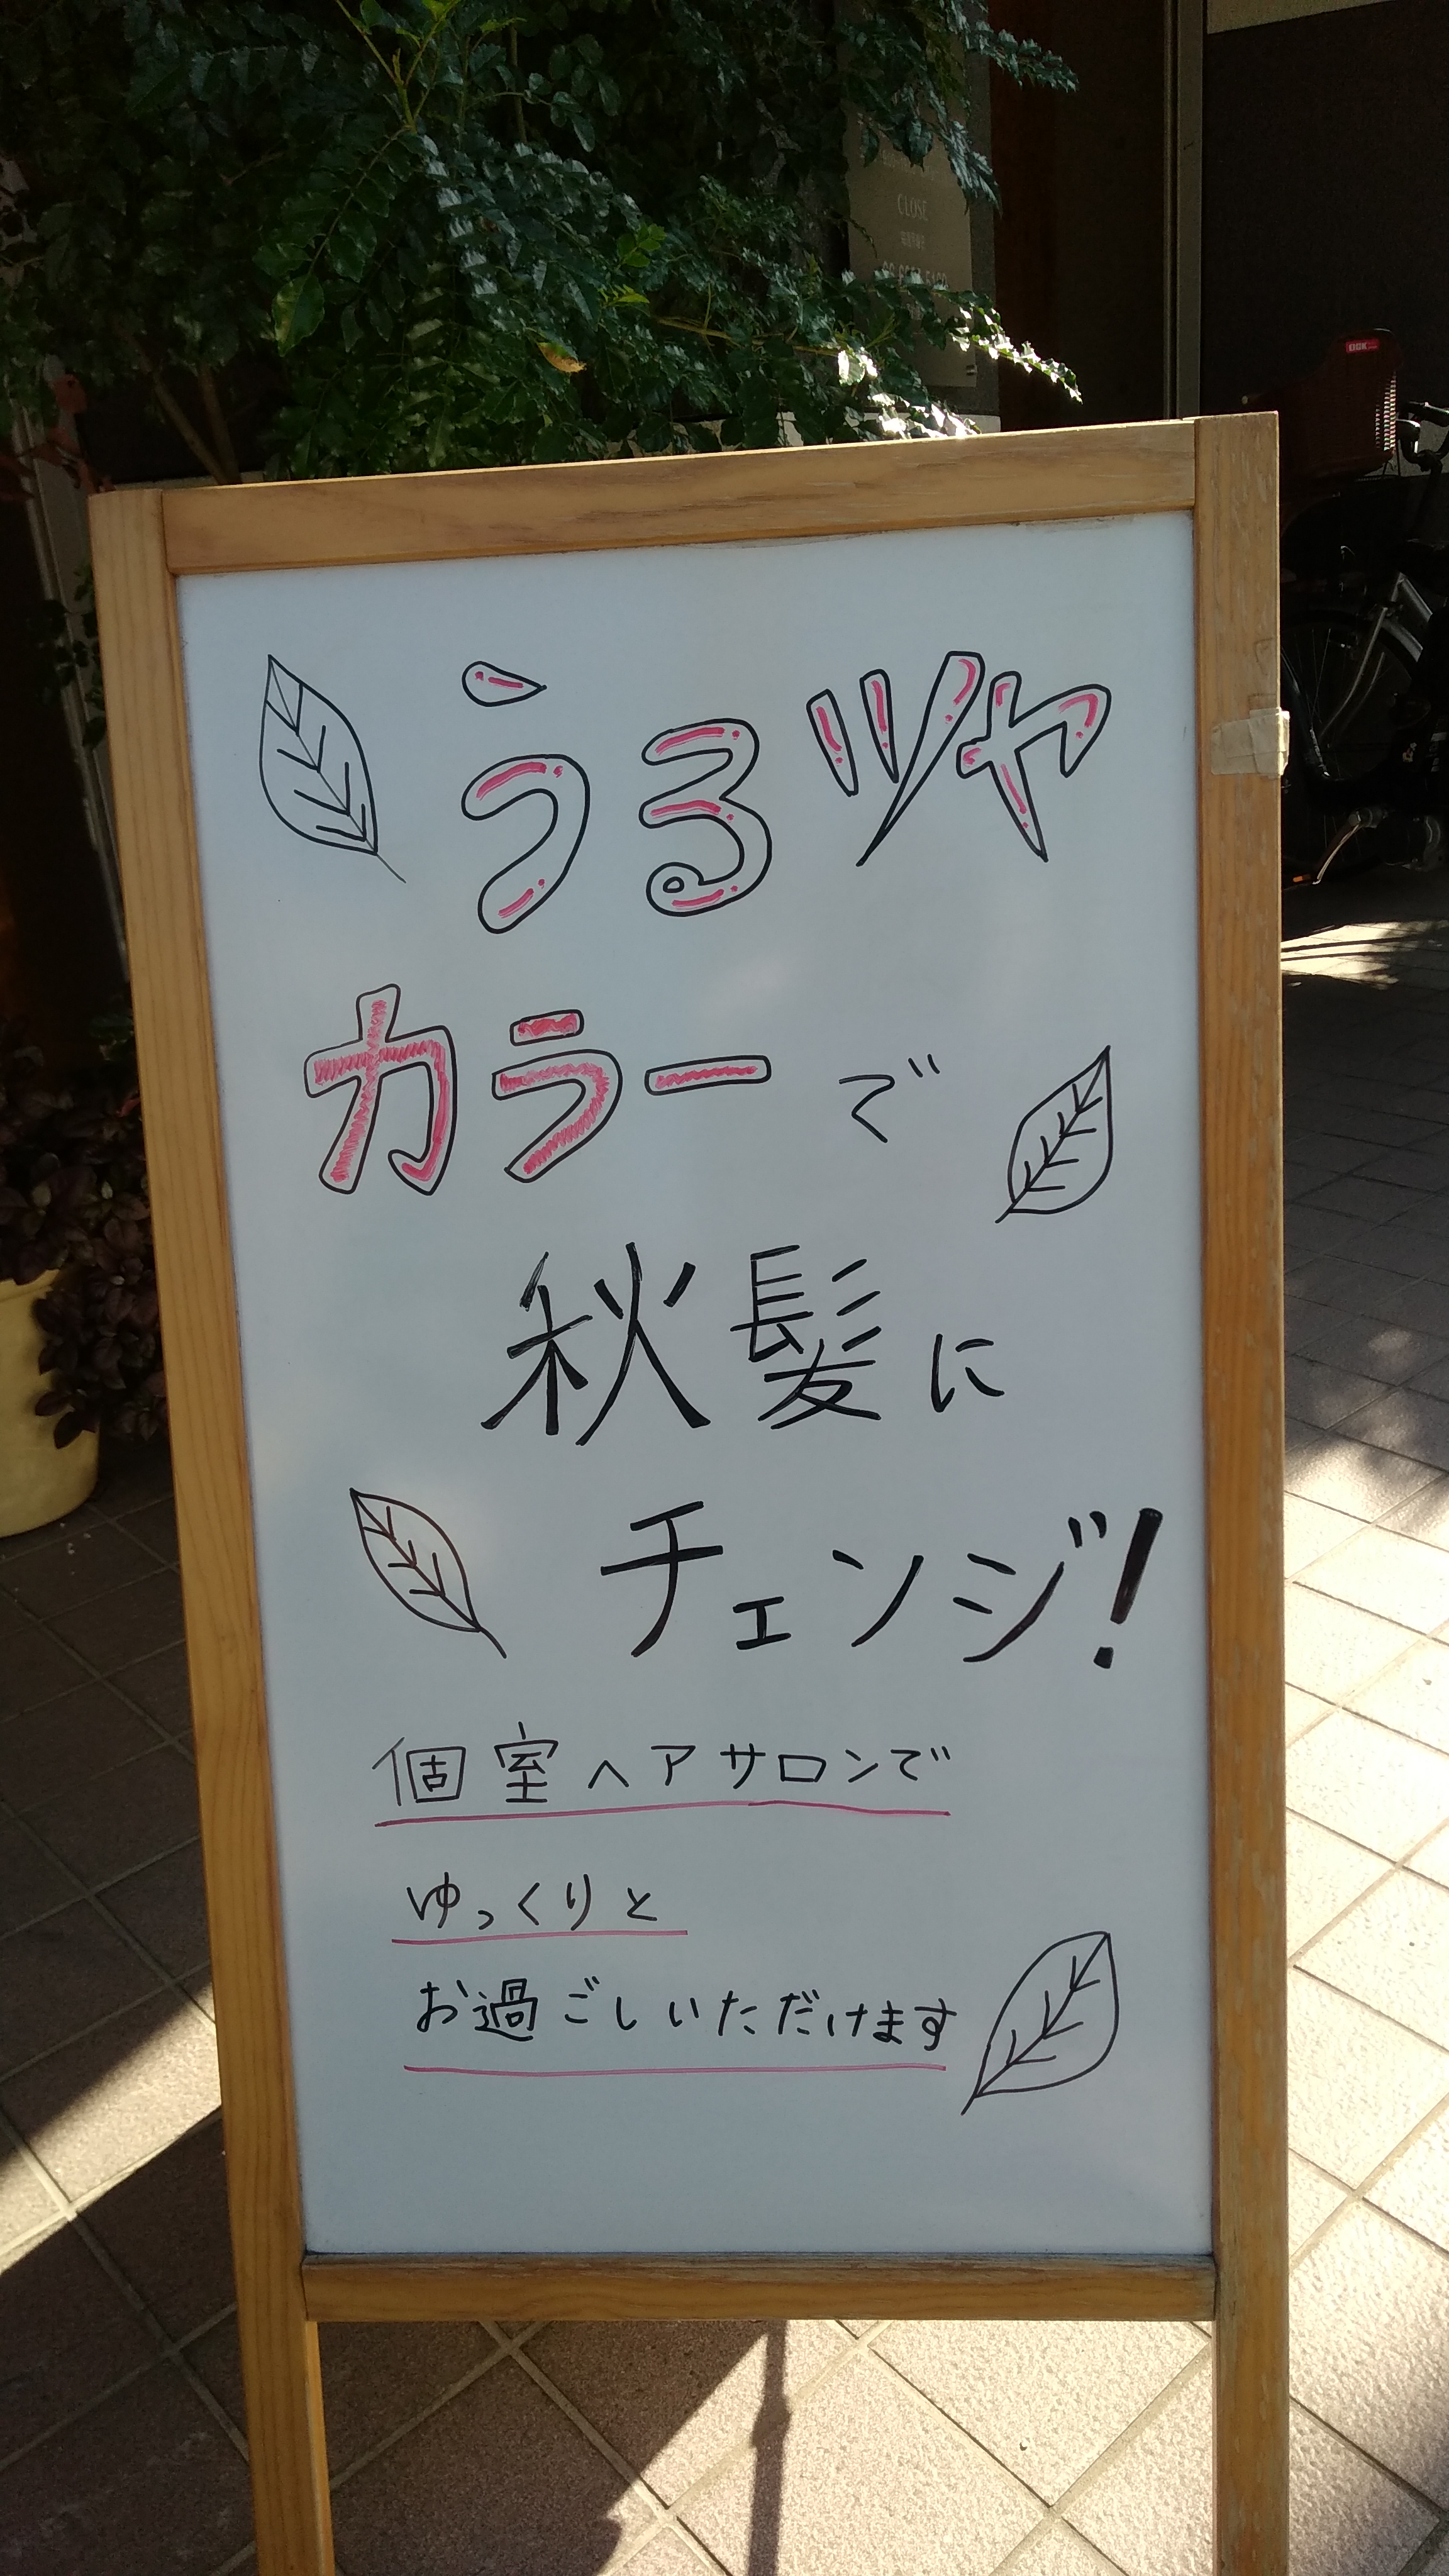 CLOSE
うるツヤ
カラーで
秋髪に
チェンジ!
個室ヘアサロンで
ゆっくりと
お過ごしいただけます